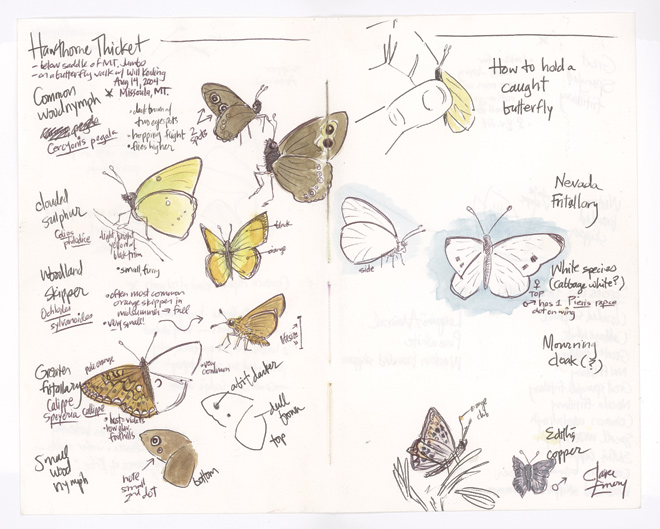 Hawthorne Thicket
- below saddle of MT. Jumbo
- on a butterfly walk w/ Will Kealing
Aug 14, 2004
Missoula, MT.
Common
Woodnymph
Cercyonis pegala
• dark brown w/
two eyespots
• hopping flight
• flies higher
2
spots
Clouded
Sulphur
Colias
philodice
light, bright
yellow w/
black trim
black
orange
Woodland
Skipper
Ochlodes
sylvanoides
• small, furry
• often most common
orange skipper in
midsummer → fall
• very small!
life size
Greater
fritillary
Calippe
Speyeria callippe
pale orange
very
common
foothills
Small
Wood
nymph
note
small
2nd dot
bottom
a bit darker
dull
brown
top
How to hold a
caught
butterfly
Nevada
Fritillary
side
White species
(cabbage white?)
♀
TOP
♂ has 1 Pieris rapae
dot on wing
Mourning
cloak (?)
orange
dot
Edith's
copper
♂
Clare
Emery